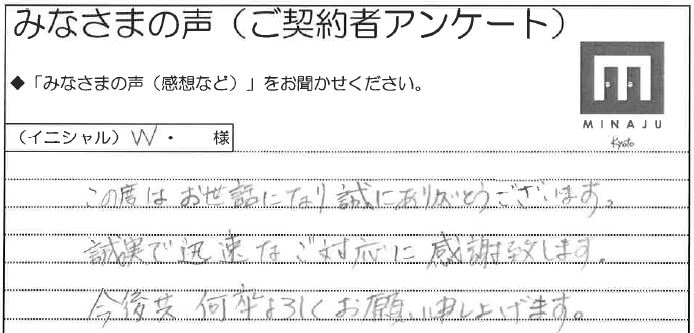 みなさまの声（ご契約者アンケート）
◆「みなさまの声（感想など）」をお聞かせください。
MINAJU
Kyoto
（イニシャル）W・　　様
この度はお世話になり誠にありがとうございます。
誠実で迅速なご対応に感謝致します。
今後共何卒よろしくお願い申し上げます。